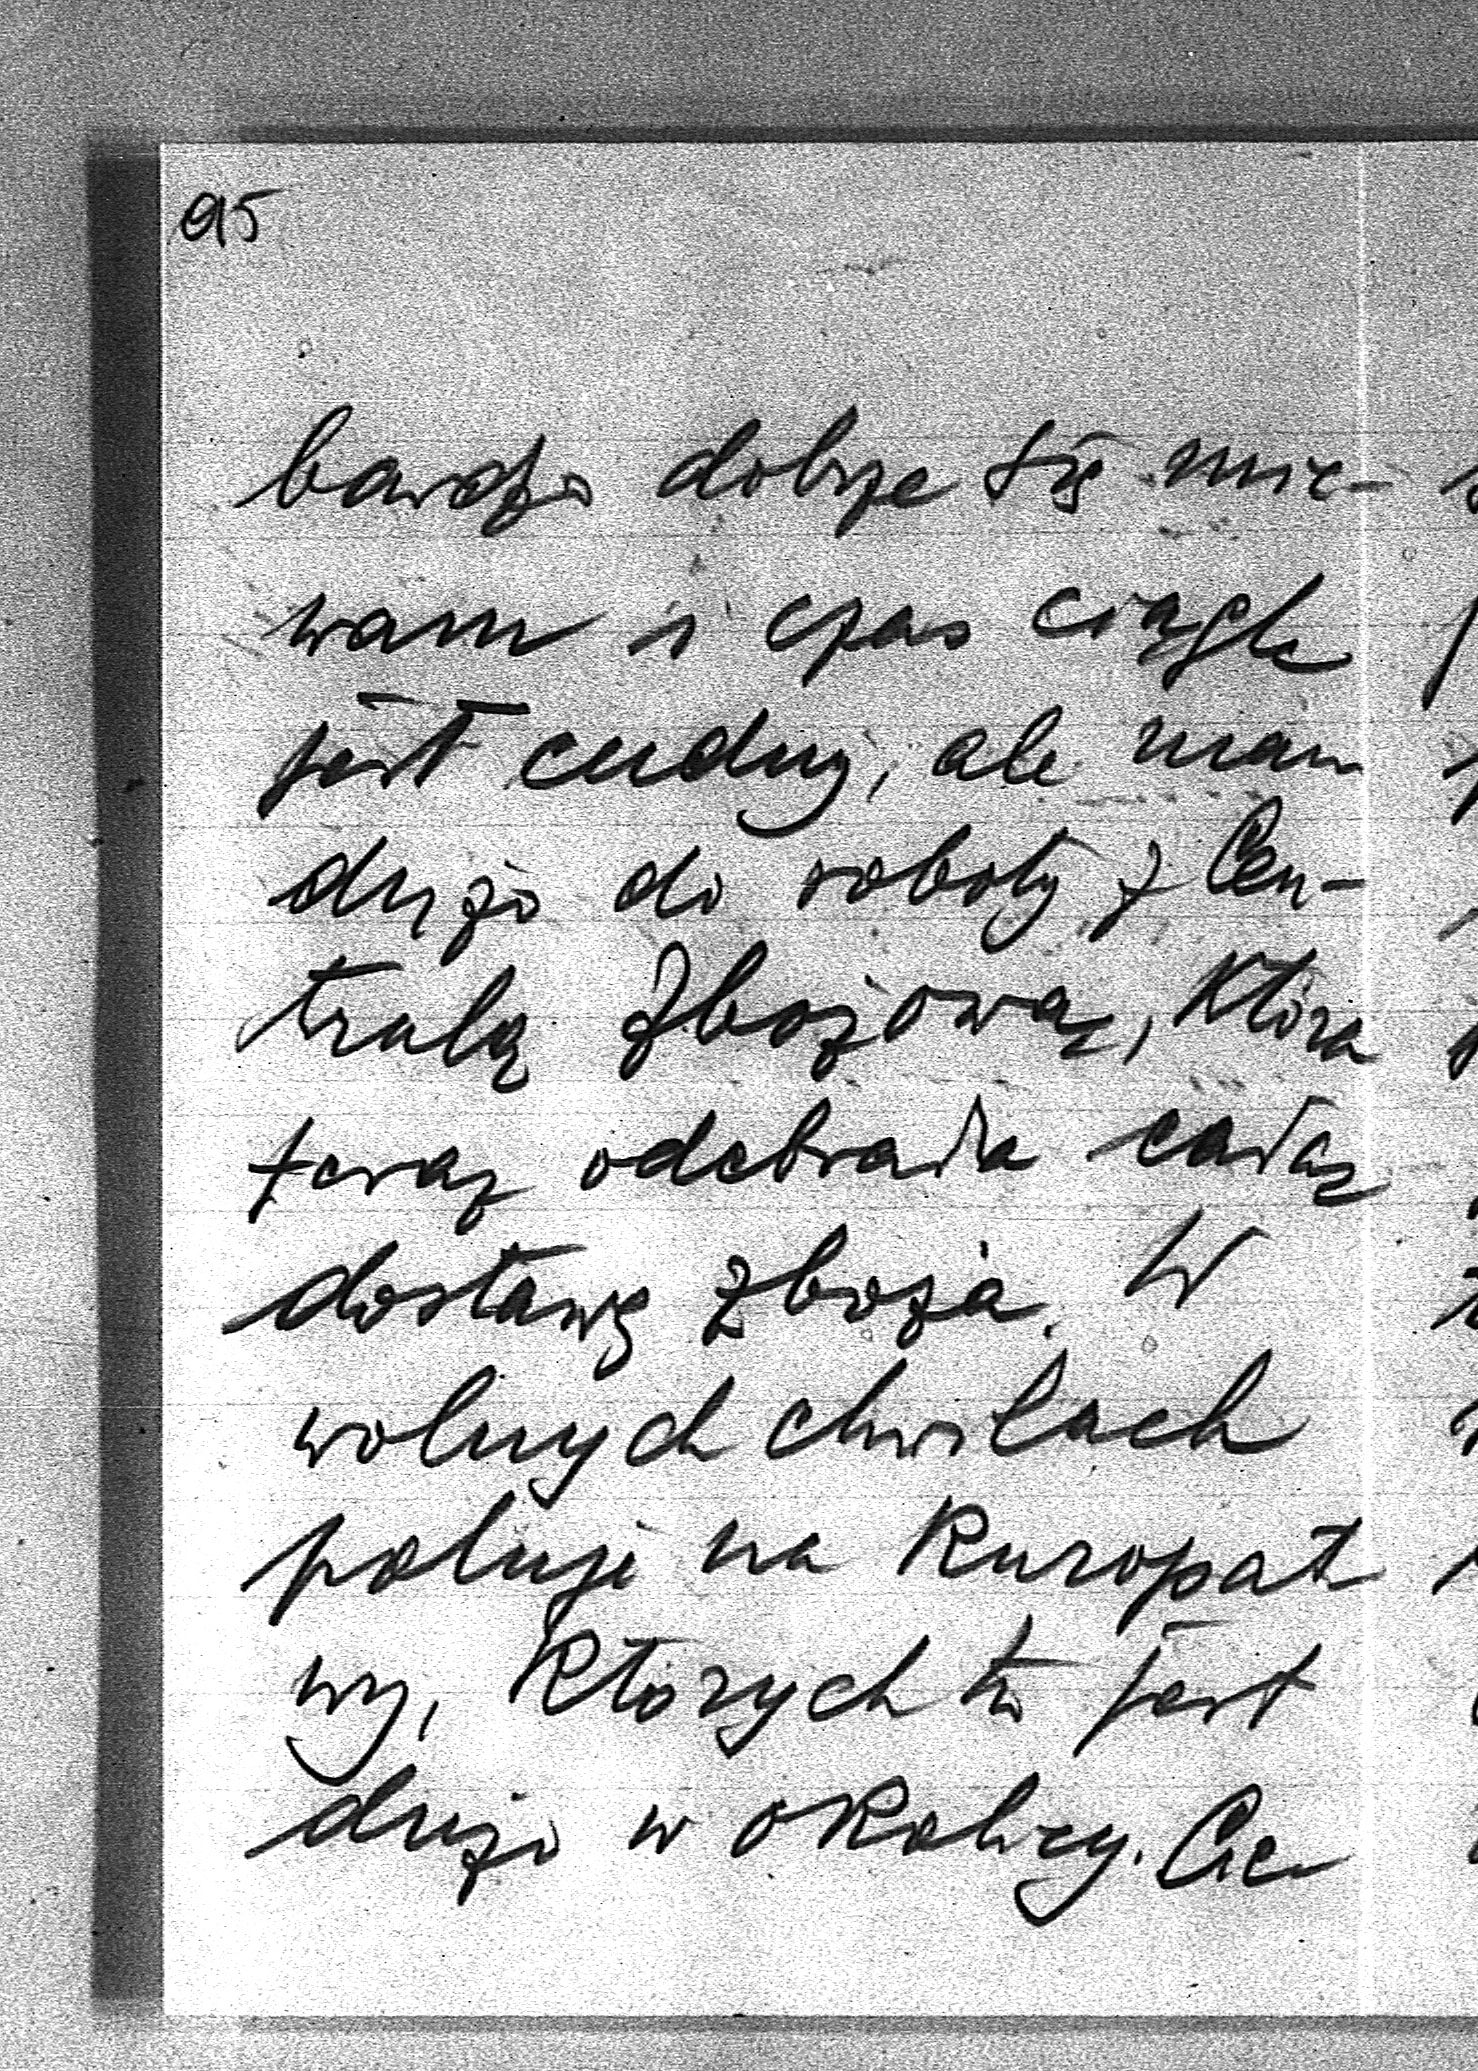 95
bardzo dobrze się mie-
wam i czas ciągle
jest cudny, ale mam
dużo do roboty z Cen-
tralą Zbożową, która
teraz odebrała całą
dostawę zboża. W
wolnych chwilach
poluję na kuropat
wy, których tu jest
dużo w okolicy. Cie